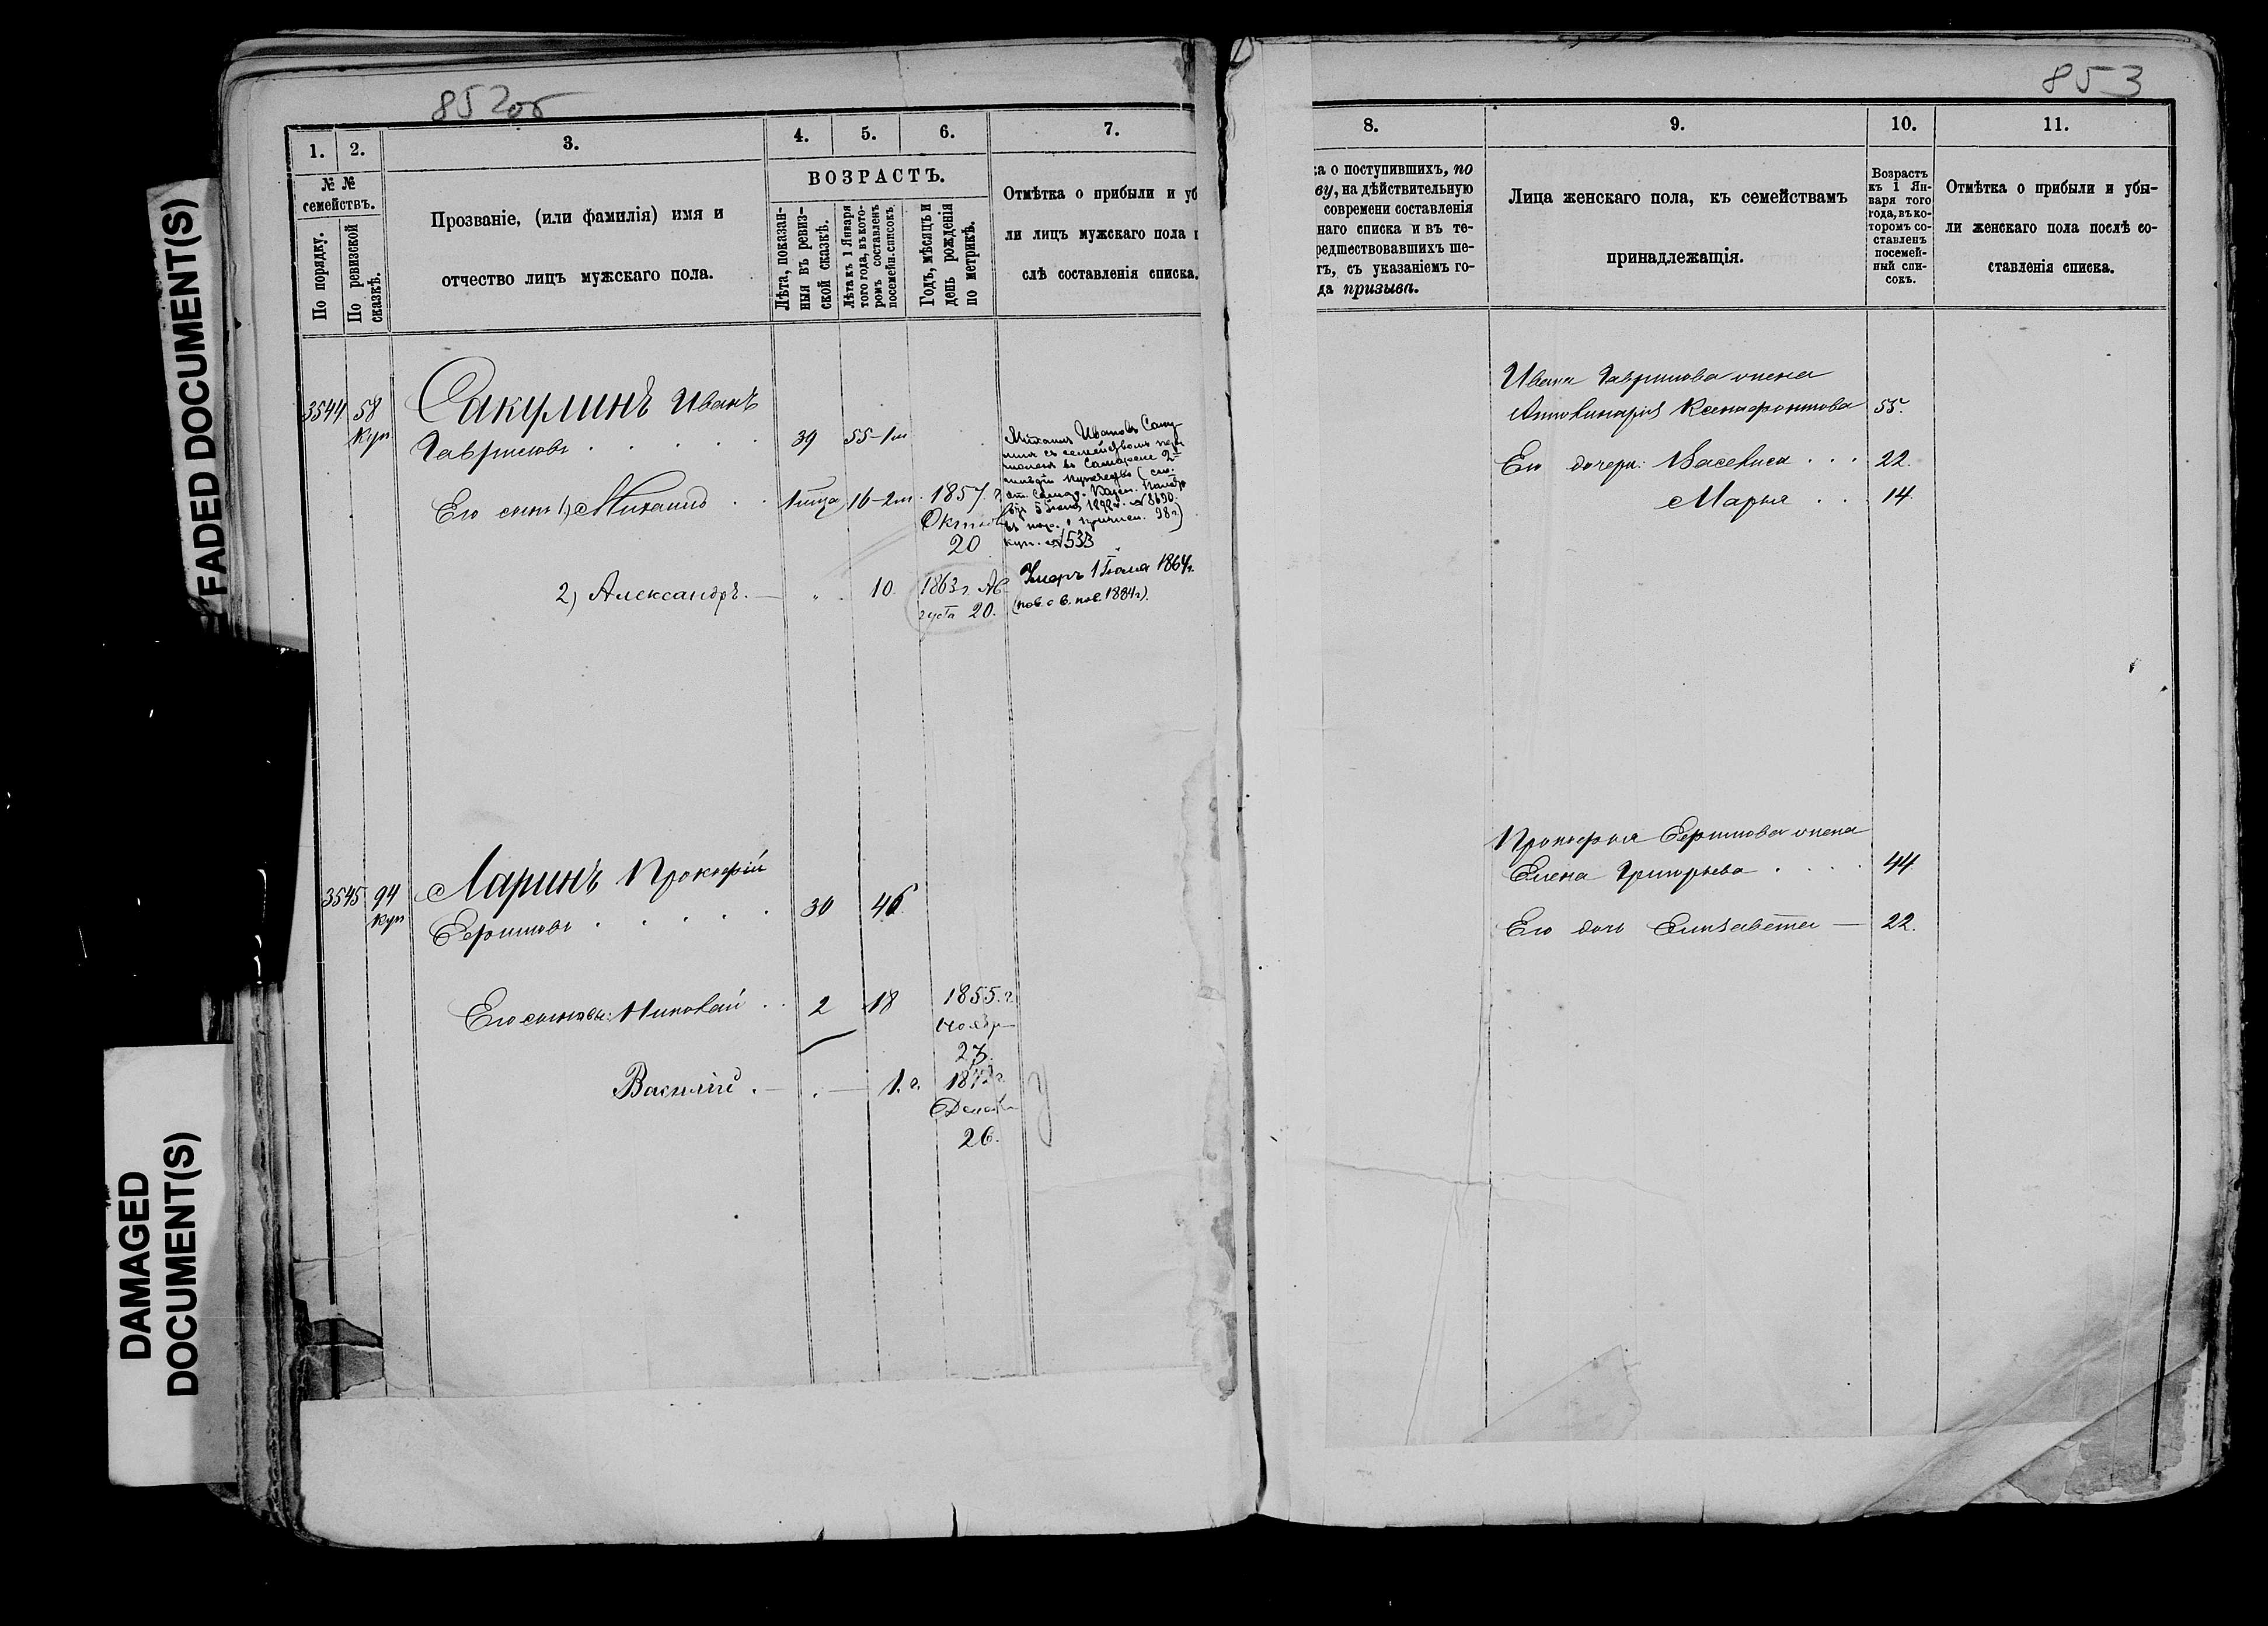 FADED DOCUMENT(S)
DAMAGED
DOCUMENT(S)
852об
1.
2.
3.
4.
5.
6.
7.
№ №
семействъ.
По порядку.
По ревизской
сказкѣ.
Прозваніе, (или фамилія) имя и
отчество лицъ мужскаго пола.
ВОЗРАСТЪ.
Лѣта, показан-
ныя въ ревиз-
ской сказкѣ.
Лѣта къ 1 Января
того года, въ кото-
ромъ составленъ
посемейн. списокъ.
Годъ, мѣсяцъ и
день рожденія
по метрикѣ.
Отмѣтка о прибыли и уб
ли лицъ мужскаго пола п
слѣ составленія списка.
3544 58 Сакулинъ Иванъ
куп
Гавриловъ . . . . . 39 55-1м
Его сынъ 1) Михаилъ . . 1 мца 16-2м. 1857. г
Октяб
20
Михаилъ Ивановъ Саку
линъ съ семействомъ
въ Самарское 2й
гильдіи купечество
куп. №533
2) Александръ. — " . 10. 1863г. Ав
густа 20.
Умеръ 1 1864г.
3545 94 Ларинъ Прокофій
куп
Ефимовъ . . . . . 30 46
Его сыновья: Николай . . 2 18 1855. г
Ноябр
27.
Василій . — . — 1. г.
Декаб
26.
853
8.
9.
10.
11.
ка о поступившихъ, по
ву, на дѣйствительную
современи составленія
наго списка и въ те-
редшествовавшихъ ше-
тъ, съ указаніемъ го-
да призыва.
Лица женскаго пола, къ семействамъ
принадлежащія.
Возрастъ
къ 1 Ян-
варя того
года, въ ко-
торомъ со-
ставленъ
посемей-
ный спи-
сокъ.
Отмѣтка о прибыли и убы-
ли женскаго пола послѣ со-
ставленія списка.
Ивана Гаврилова жена
Ксенофонтова 55.
Его дочери: Васелиса . . . 22.
Марья . . . 14.
Прокофья Ефимова жена
Елена Григорьева . . . . 44.
Его дочь Елизавета — 22.